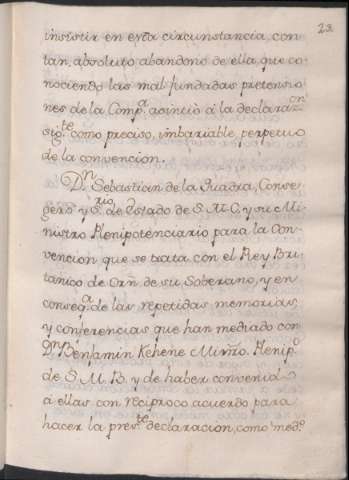 23
insistir en esta circunstancia, con
tan absoluto abandono de ella, que co-
nociendo las mal fundadas pretensio
nes de la Comp.ª asintio á la declaraz.on
sig.te como preciso, imbariable, perpetuo
de la convencion.
D.n Sebastian de la Quadra, Conse
gero y S.rio de Estado de S. M. C. y su Mi
nistro Plenipotenciario para la Con-
vencion que se trata con el Rey Bri
tanico de Orn̄ de su Soberano, y en
conseq.ª de las repetidas memorias,
y conferencias que han mediado con
D.n Benjamin Kehene Minr̃o. Plenip.º
de S. M. B. y de haber convenido
á ellas con reciproco acuerdo para
hacer la pres.te declaracion, como med.º